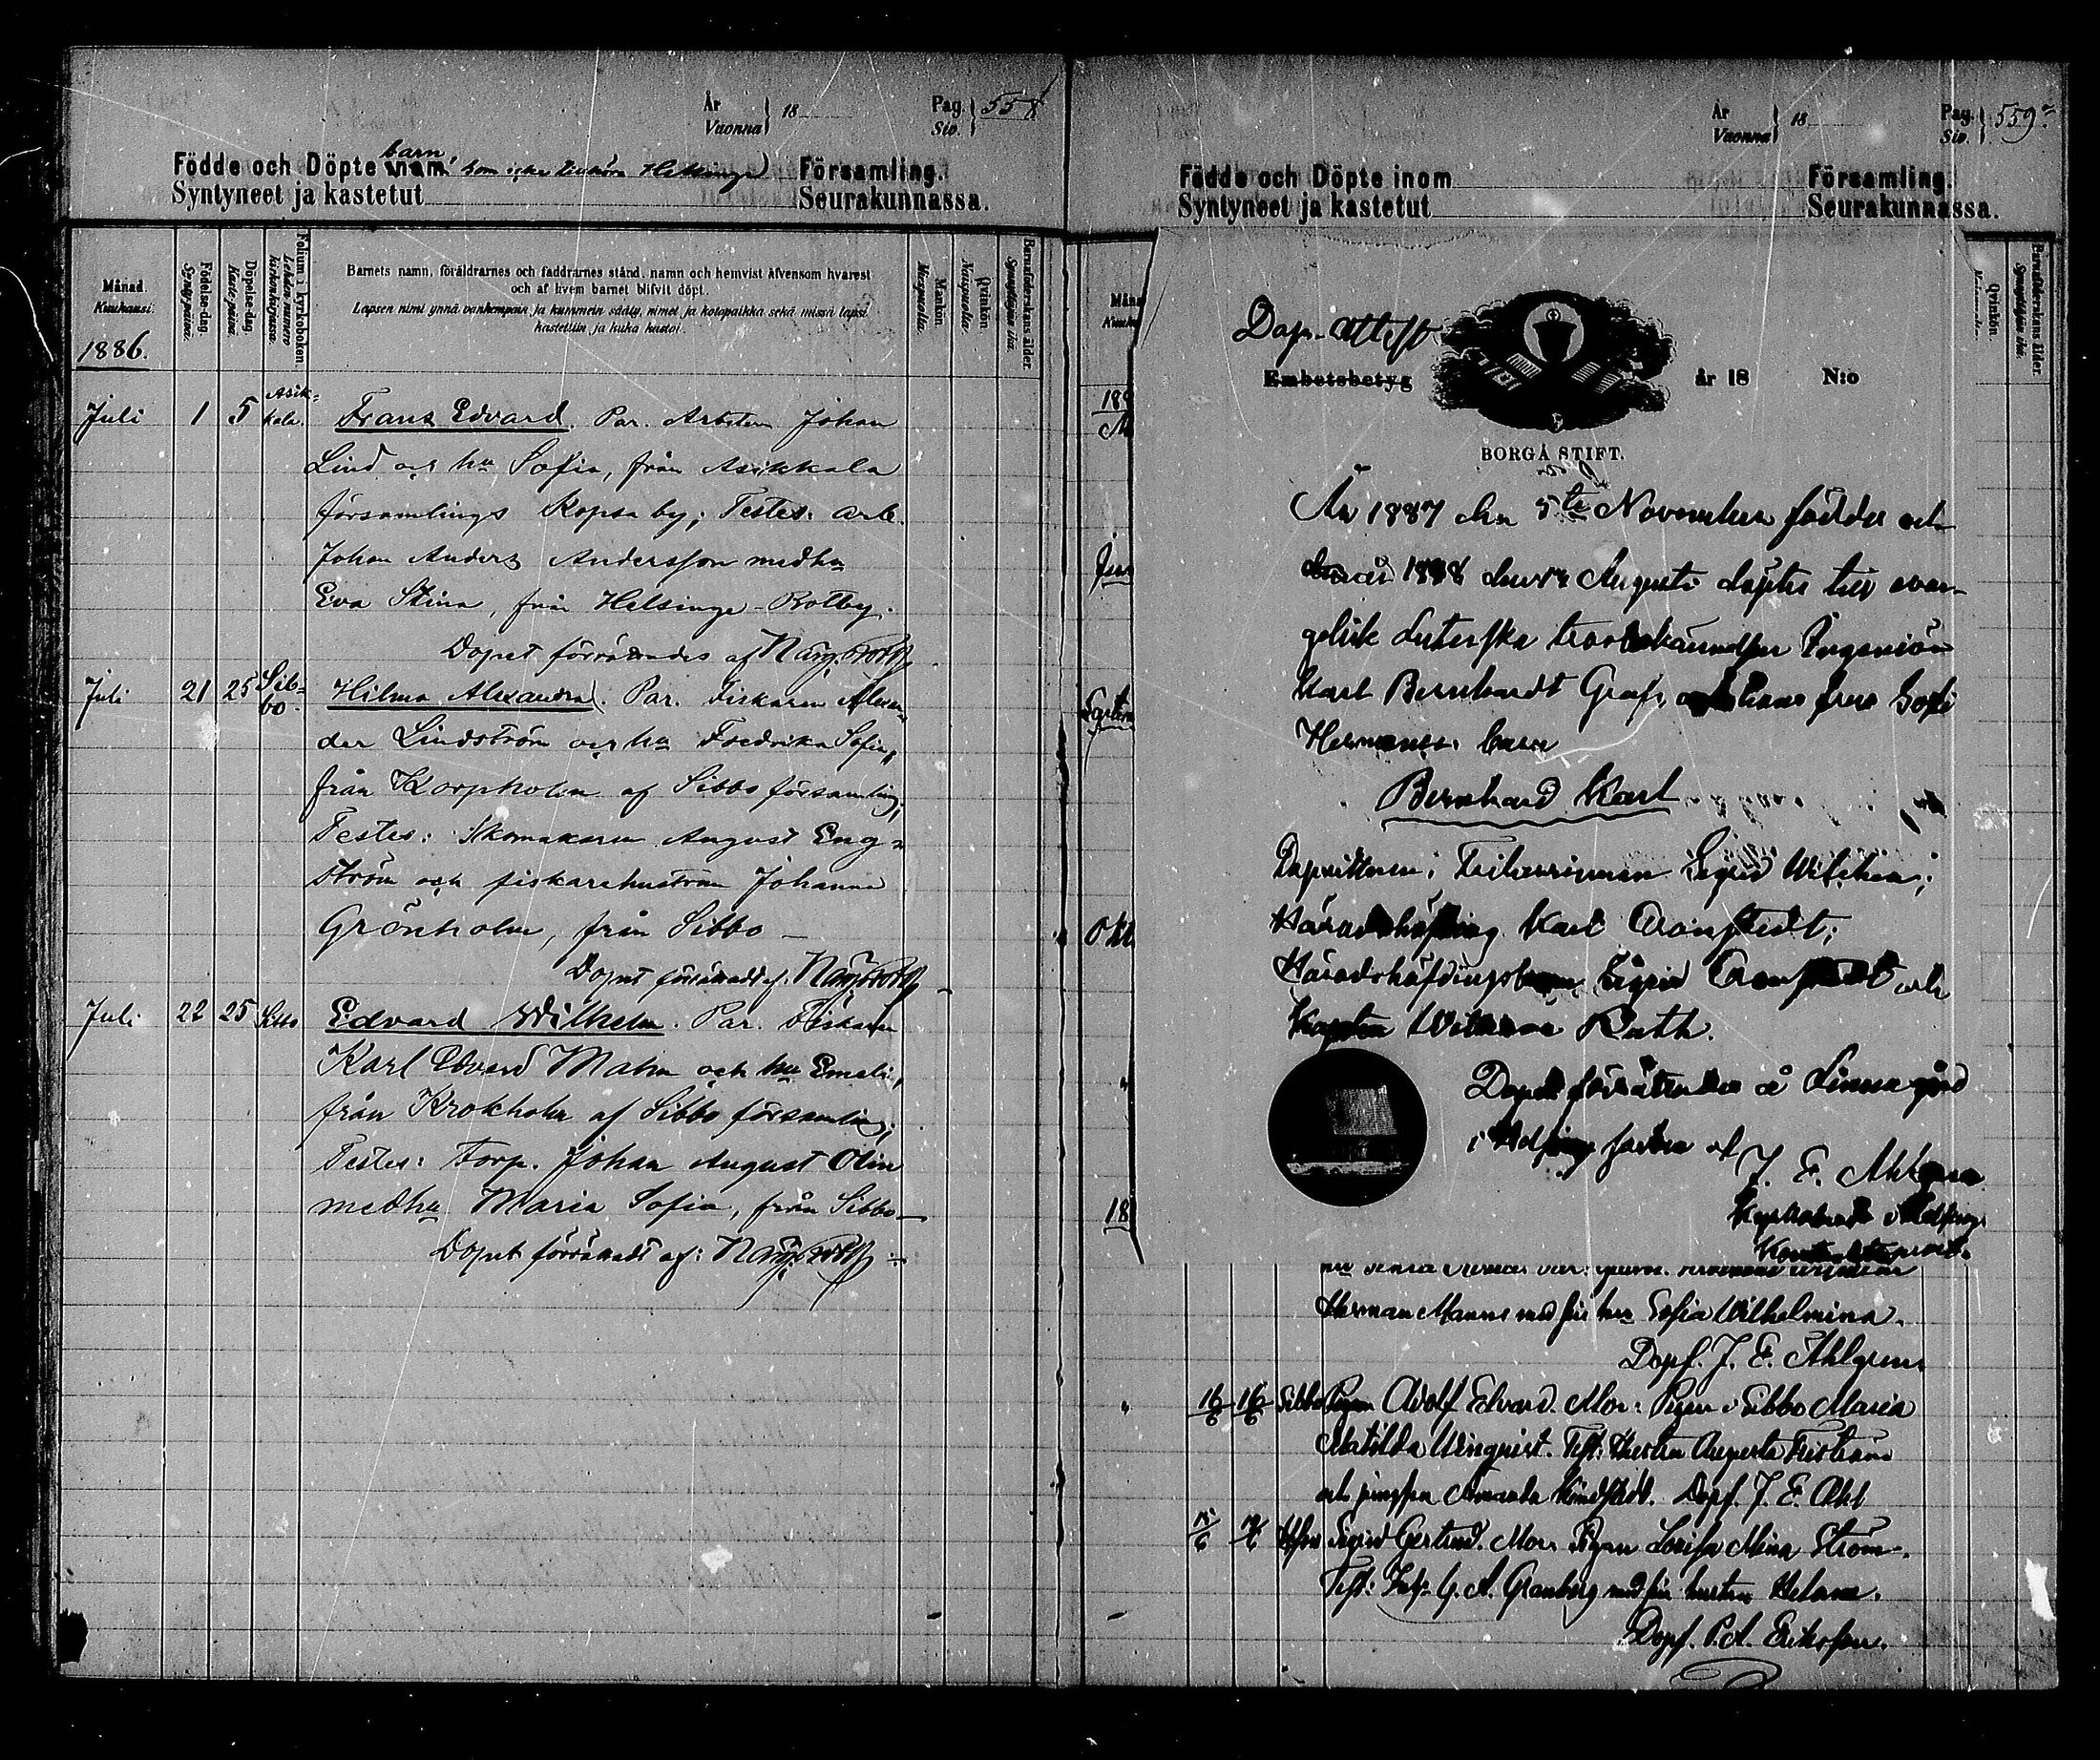 År
Vuonna 18
Pag.
Siv. 558
Födde och Döpte inom barn, som icke tillhöra Helsinge Församling.
Syntyneet ja kastetut Seurakunnassa.
Månad.
Kuukausi.
Födelse-dag.
Synty-päivä.
Döpelse-dag.
Kaste-päivä.
Folium i kyrkoboken.
Lehden numero
kirkonkirjassa.
Barnets namn, föräldrarnes och faddrarnes stånd, namn och hemvist äfvensom hvarest
och af hvem barnet blifvit döpt.
Lapsen nimi ynnä vanhempain ja kummein sääty, nimet ja kotopaikka sekä missä lapsi
kastettiin ja kuka kastoi.
Mankön.
Miespuolia.
Qvinkön.
Naispuolia.
Barnaföderskans ålder.
Synnyttäjän ikä.
1886.
Juli 1 5 Asik-
kala. Frans Edvard. Par. Arbetaren Johan
Lind och hu Sofia, från Asikkala
församlings Kopsa by; Testes: arb.
Johan Anders Andersson med hu
Eva Stina, från Helsinge-Botby.
Dopet förrättades af
Juli 21 25 Sib-
bo. Hilma Alexandra. Par. Fiskaren Alexan-
der Lindström och hu Fredrika Sofia,
från Korpholm af Sibbo församling;
Testes: Skomakaren August Eng-
ström och fiskarehustrun Johanna
Grönholm, från Sibbo —
Dopet förrättadt af.
Juli 22 25 Sibbo Edvard Wilhelm. Par. Fiskaren
Karl Edvard Malm och hu Emeli,
från Krokholm af Sibbo församling;
Testes: Torp. Johan August Olin
med hu Maria Sofia, från Sibbo —
Dopet förrättadt af:
År
Vuonna 18
Pag.
Siv. 559
Födde och Döpte inom Församling.
Syntyneet ja kastetut Seurakunnassa.
Qvinkön.
Barnaföderskans ålder.
Synnyttäjän ikä.
Dop-Attest
Embetsbetyg år 18 N:o
BORGÅ STIFT.
År 1887 den 5te November föddes och
år 1888 den Augusti döptes till evan-
gelisk Luterska trosbekännelsen Ingeniör
Karl Bernhardt Grafs, och hans frus Sofi
barn
Bernhard Karl
Dopvittnen: Friherrinnan Sigrid
Häradshöfding Karl Cronstedt;
Häradshöfdingskan Sigrid Cronstedt och
Ruth.
Dopet förrättades å Linna gård
i Helsinge socken af
J. E. Ahlgren
Kyrkoherde i Helsinge
Kontraktsprost.
Herman Manns med sin hu Sofia Wilhelmina.
Dopf. J. E. Ahlgren.
16/6 16/6 Sibbo Adolf Edvard. Mor: Pigan i Sibbo Maria
Matilda Winqvist. Test: Augusta
och jungfru Amanda Dopf. J. E. Ahl
Sigrid Gertrud. Mor: Pigan Lovisa Mina Ström.
Test: G. A. Granberg med sin hustru
Dopf. P. A. Eriksson.